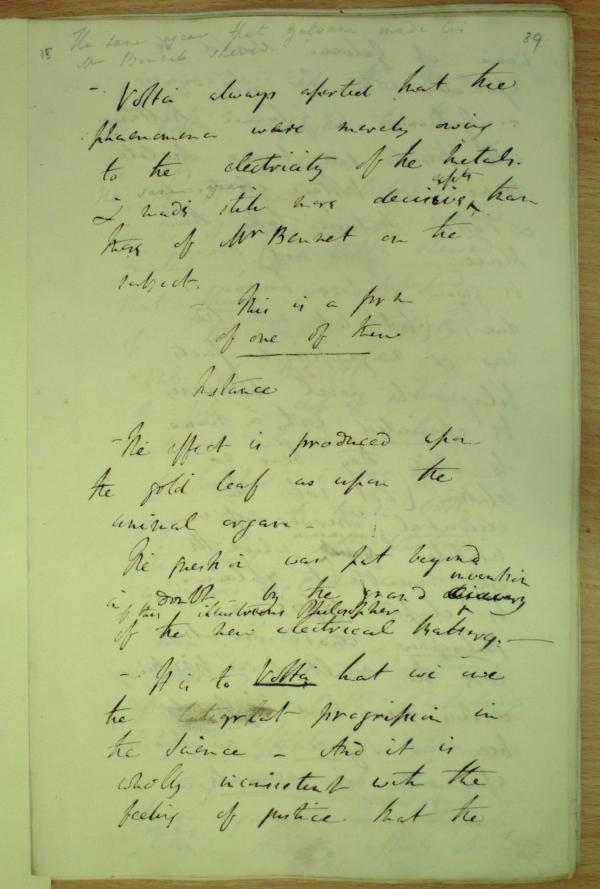 The same year that Galvani made his
15 Mr Bennet 39
- Volta always asserted that the
phaenomena were merely owing
to the electricity of the metals.
The same year
& made still more decisive expts than
those of Mr Bennet on the
subject.
- This is a form
of one of them
Instance
- The effect is produced upon
the gold leaf as upon the
animal organ -
The question was put beyond
a doubt by the grand discovery invention
of this illustrious Philosopher
of the new electrical battery. -
- It is to Volta that we owe
the great progression in
the Science - And it is
wholly inconsistent with the
feeling of justice that the